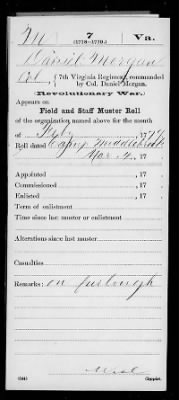 M 7 Va.
(1778–1779.)
Daniel Morgan
Col., 7th Virginia Regiment, commanded
by Col. Daniel Morgan.
(Revolutionary War.)
Appears on
Field and Staff Muster Roll
of the organization named above for the month
of Feby, 1779
Roll dated Camp Middlebrook
Mar. 2, 17
Appointed , 17
Commissioned , 17
Enlisted , 17
Term of enlistment
Time since last muster or enlistment
Alterations since last muster
Casualties
Remarks: on furlough
Copyist.